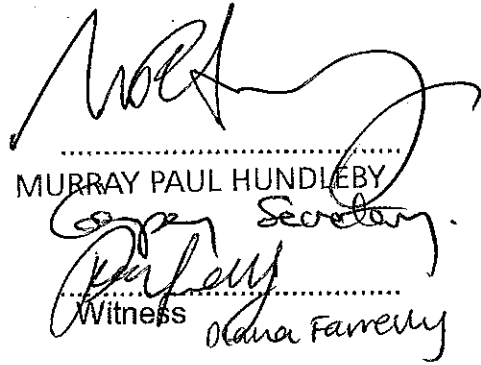 MURRAY PAUL HUNDLEBY
Company Secretary.
Witness
Diana Farrelly